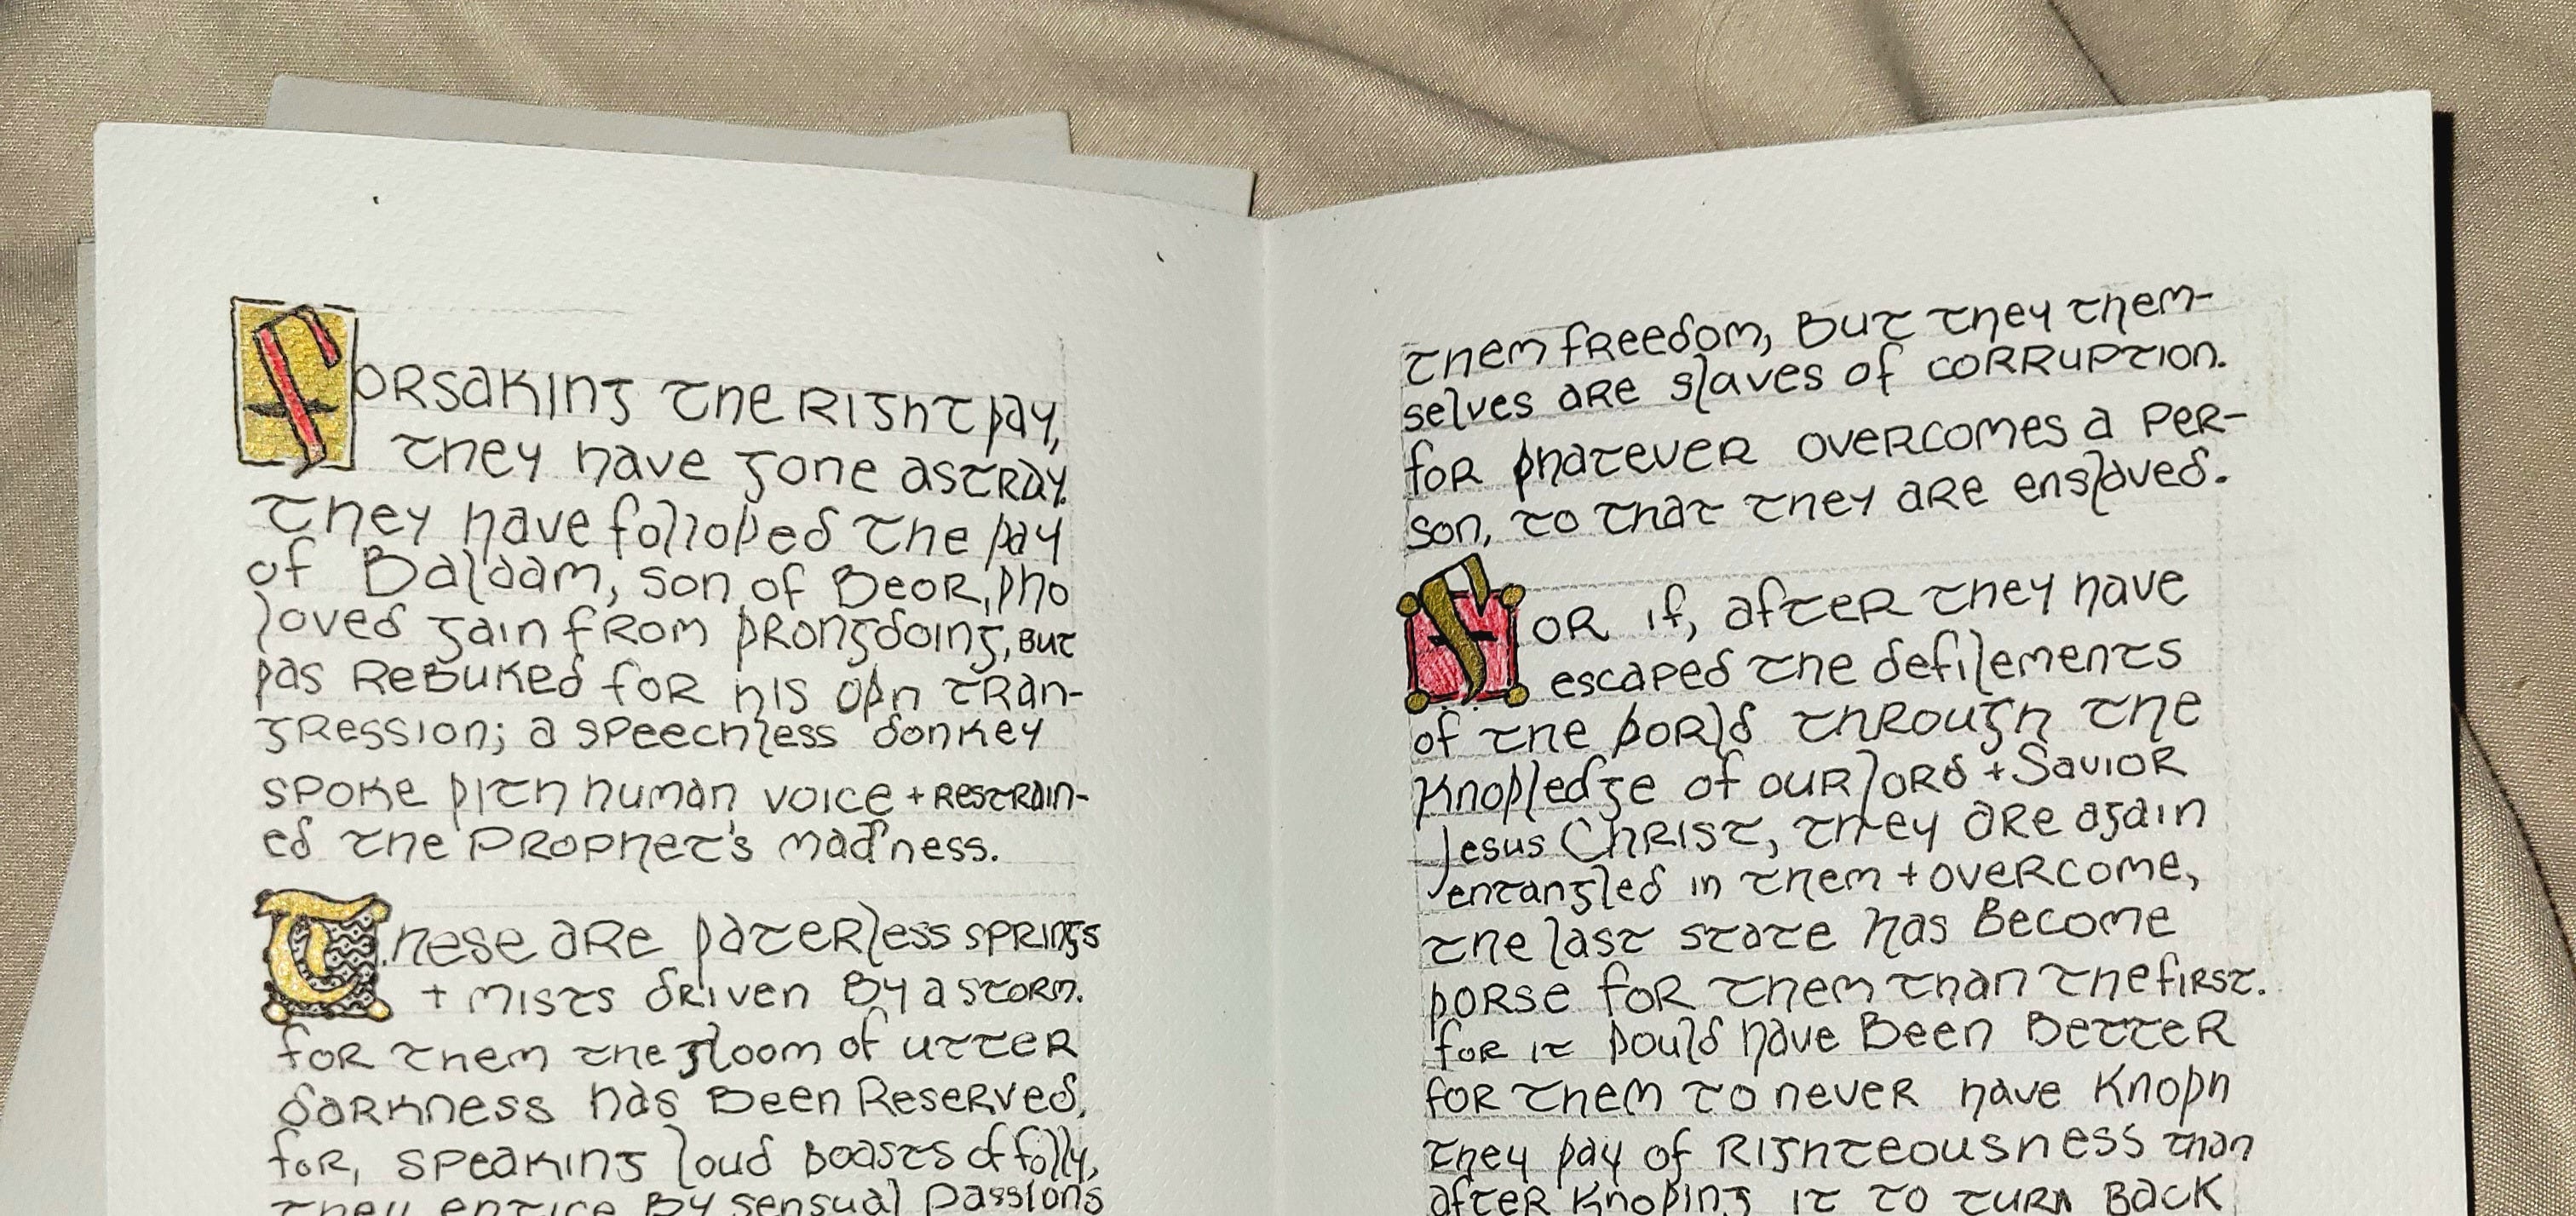 forsaking the right ƿay,
they have gone astray.
They have folloƿed the ƿay
of Balaam, son of Beor, ƿho
loved gain from ƿrongdoing, but
ƿas rebuked for his oƿn tran-
gression; a speechless donkey
spoke ƿith human voice + restrain-
ed the prophet's madness.
These are ƿaterless springs
+ mists driven by a storm.
for them the gloom of utter
darkness has been reserved,
for, speaking loud boasts of folly,
they entice by sensual passions
them freedom, but they them-
selves are slaves of corruption.
for ƿhatever overcomes a per-
son, to that they are enslaved.
for if, after they have
escaped the defilements
of the ƿorld through the
knoƿledge of our lord + Savior
Jesus Christ, they are again
entangled in them + overcome,
the last state has become
ƿorse for them than the first.
for it ƿould have been better
for them to never have knoƿn
they ƿay of righteousness than
after knoƿing it to turn back